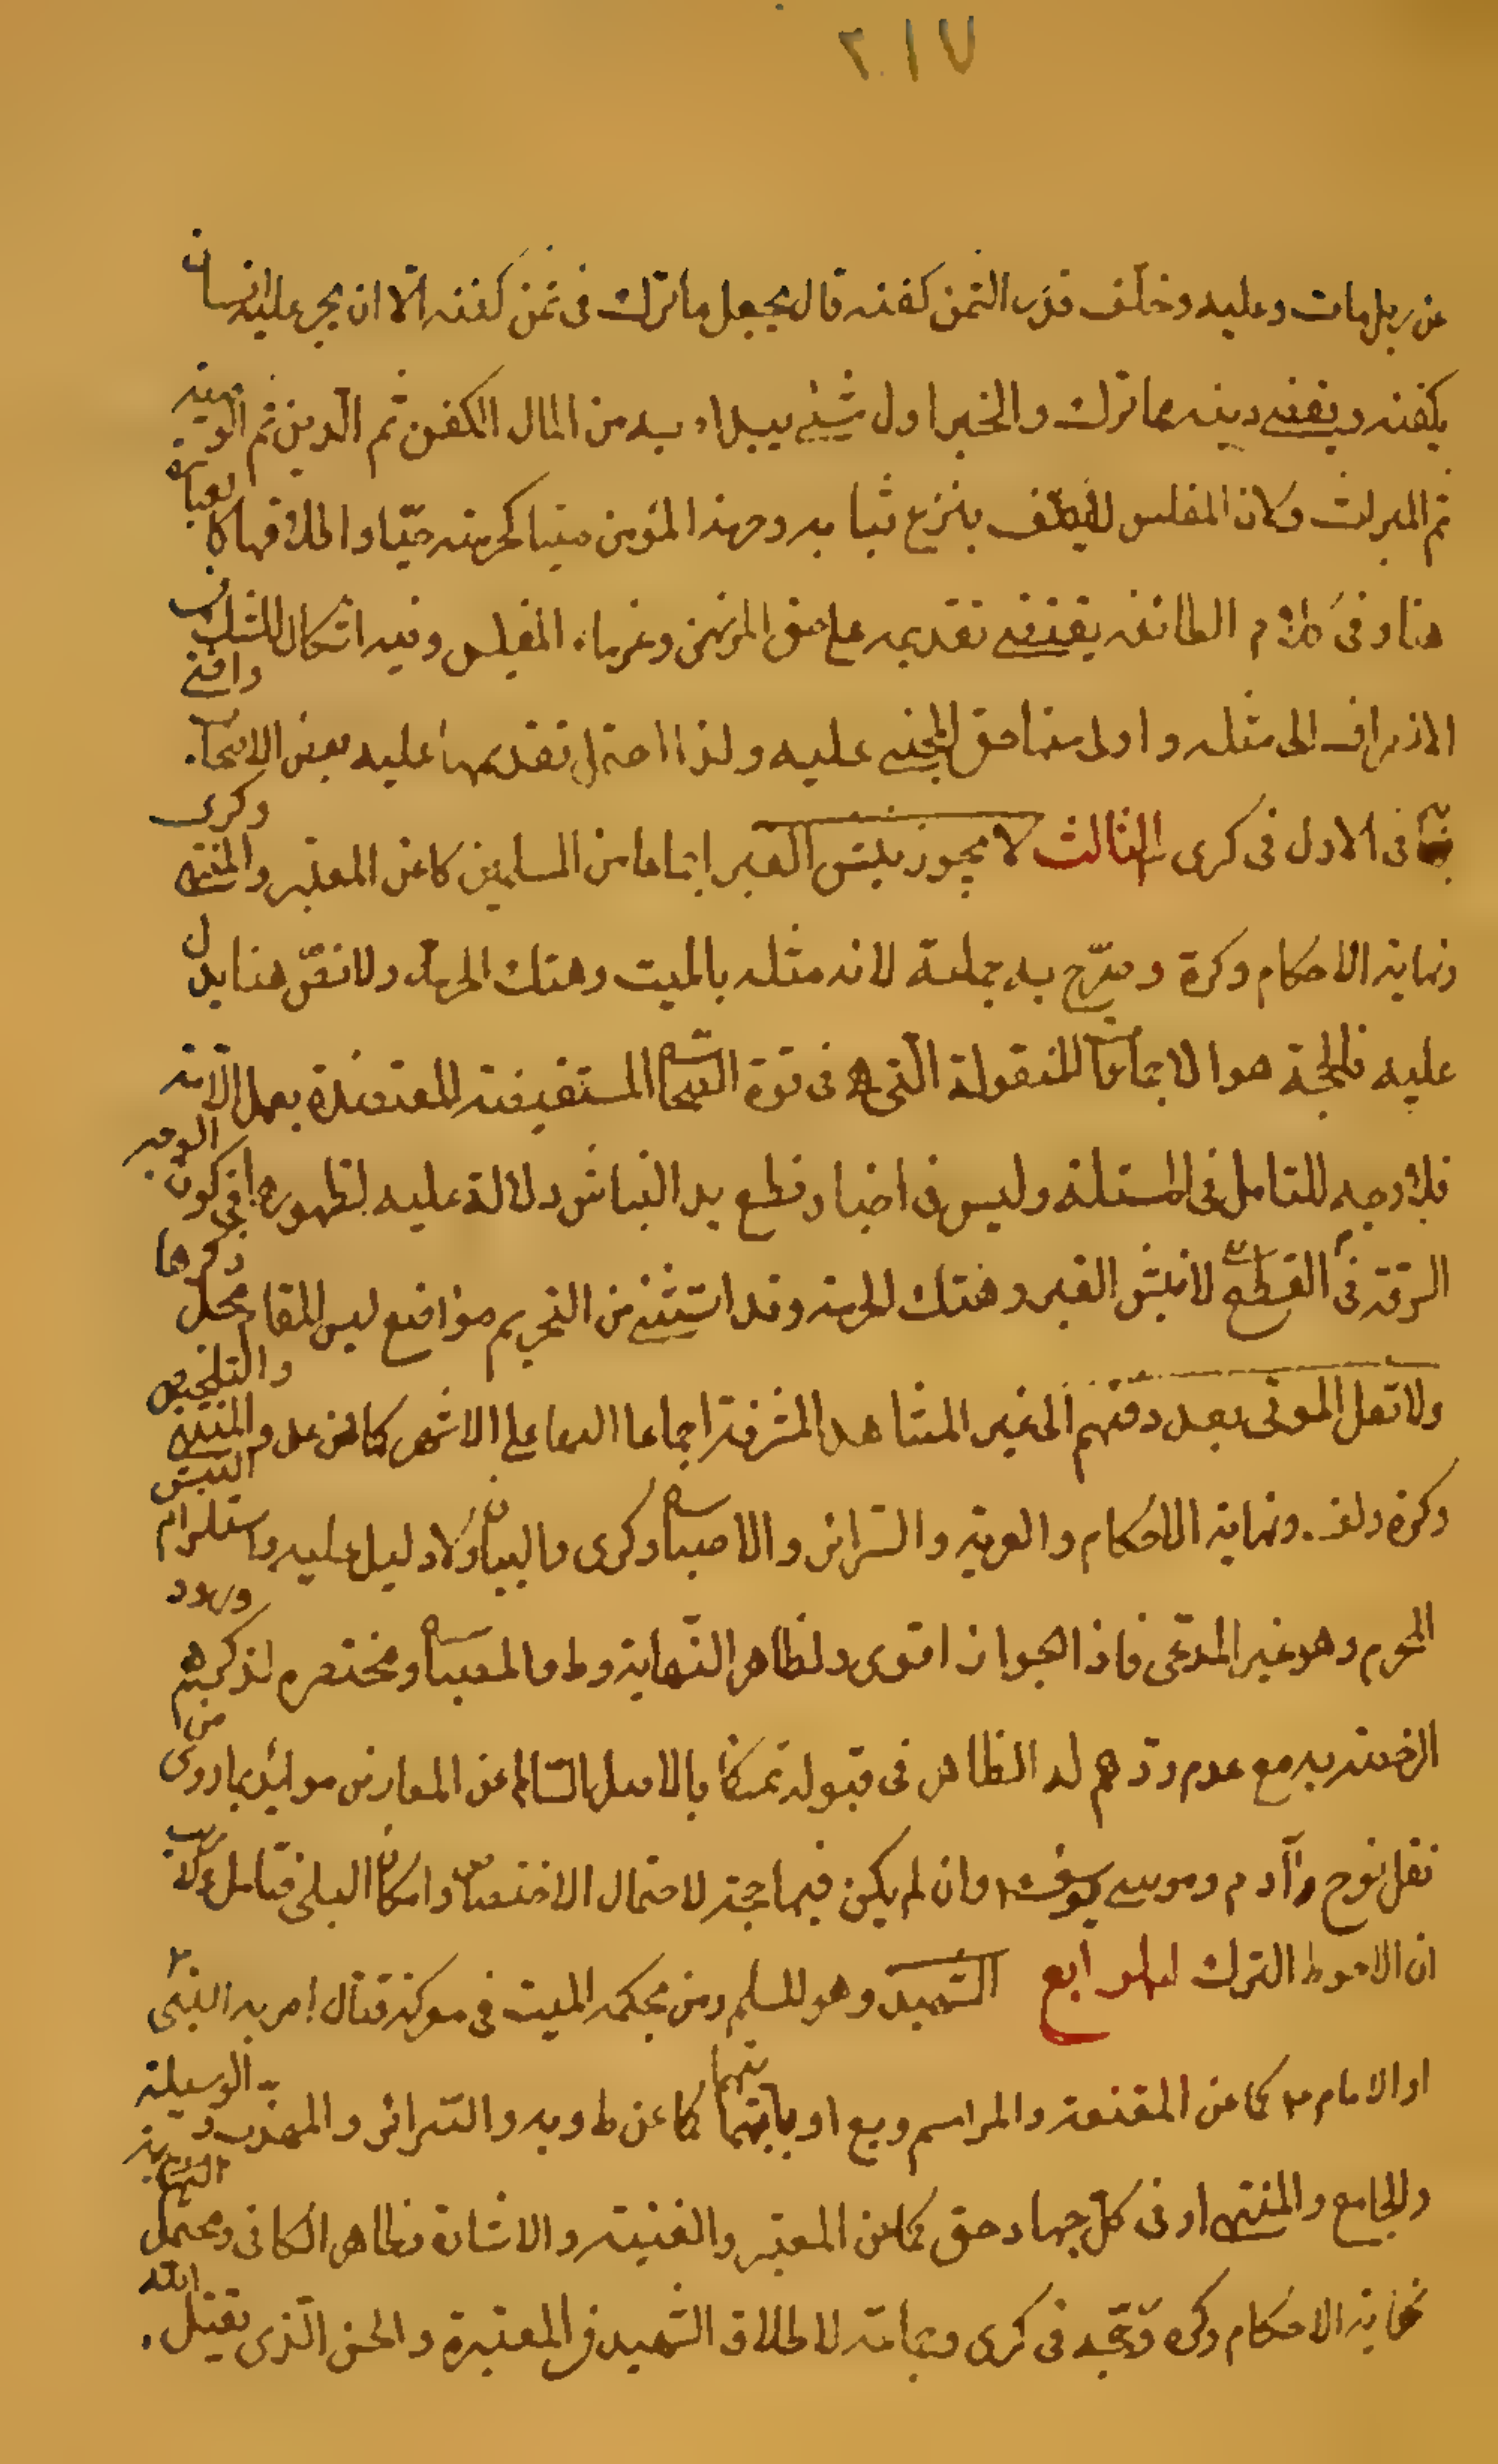 ٢١٧
عن رجل مات وعليه وخلف قدر الثمن كفنه قال يجعل ما ترك في ثمن كفنه الا ان يجر عليه انسان
بكفنه ويقضى دينه مما ترك والخبر اول شيئ يبداء به من المال الكفن ثم الدين ثم الوصية
ثم الميراث وكان المفلس لا يكلف بنزع ثيابه وحرمة المؤمن ميتا كحرمته حيّا واطلاقها كالعبارة
هنا وفي كلام الطائفة يقتضى تقديمه على حق المرتهن وغرماء المفلس وفيه اشكال للشك في
الانصراف الى مثله واولى منهما حق المجنى عليه ولذا احتمل تقديمهما عليه بعض الاصحاب وافتى
بهما في الاول في كرى الثالث لا يجوز نبش القبر اجماعا من المسلمين كما عن المعتبر والمنتهى وكرى
ونهاية الاحكام وكرة ومصرّح به جماعة لانه مثله بالميت وهتك الحرمة ولا نصّ هنا يدل
عليه فالحجة هو الاجماعات المنقولة التي هى في قوة الصحاح المستفيضة المعتضدة بعمل الامّة
فلا وجه للتامل في المسئلة وليس في اخبار قطع يد النباش دلالة عليه لظهورها في كون الوجه
السرقة في القطع لا نبش القبر وهتك الحرمة وقد استثنى من التحريم مواضع ليس المقام محل ذكرها
ولا تنقل الموتى بعد دفنهم الى غير المشاهد المشرفة اجماعا واليها على الاشهر كما عن عد والمنتهى والتلخيص
وكرة ولف ونهاية الاحكام والعزية والسرائر والاصباح وكرى والبيان ولا دليل عليه واستلزام النبش
المحرم وهو غير المدعى فاذا الجواز اقوى ولظاهر النهاية وط والمصباح ومختصره لذكرهم ورود
الرخصة به مع عدم ردهم له الظاهر في قبوله تمسكا بالاصل السالم عن المعارض مؤيد بما روى من
نقل نوح وآدم وموسى يوسف وان لم يكن فيهما حجة لاحتمال الاختصاص وامكان البلى فتامل ولا ريب
ان الاحوط الترك الرابع الشهيد وهو المسلم ومن بحكمه الميت في معركة قتال امر به النبى
او الامام كما عن المقنعة والمراسم ويع او نائبهما كما عن ط ويه والسرائر والمهذب والوسيلة
والجامع والمنتهى او في كل جهاد حق كما عن المعتبر والغنية والاشارة وظاهر الكافى ومحتمل النهاية
نهاية الاحكام وكره وقبه في كرى وجماعة لاطلاق الشهيد في المعتبرة والحسن الذي يقتل